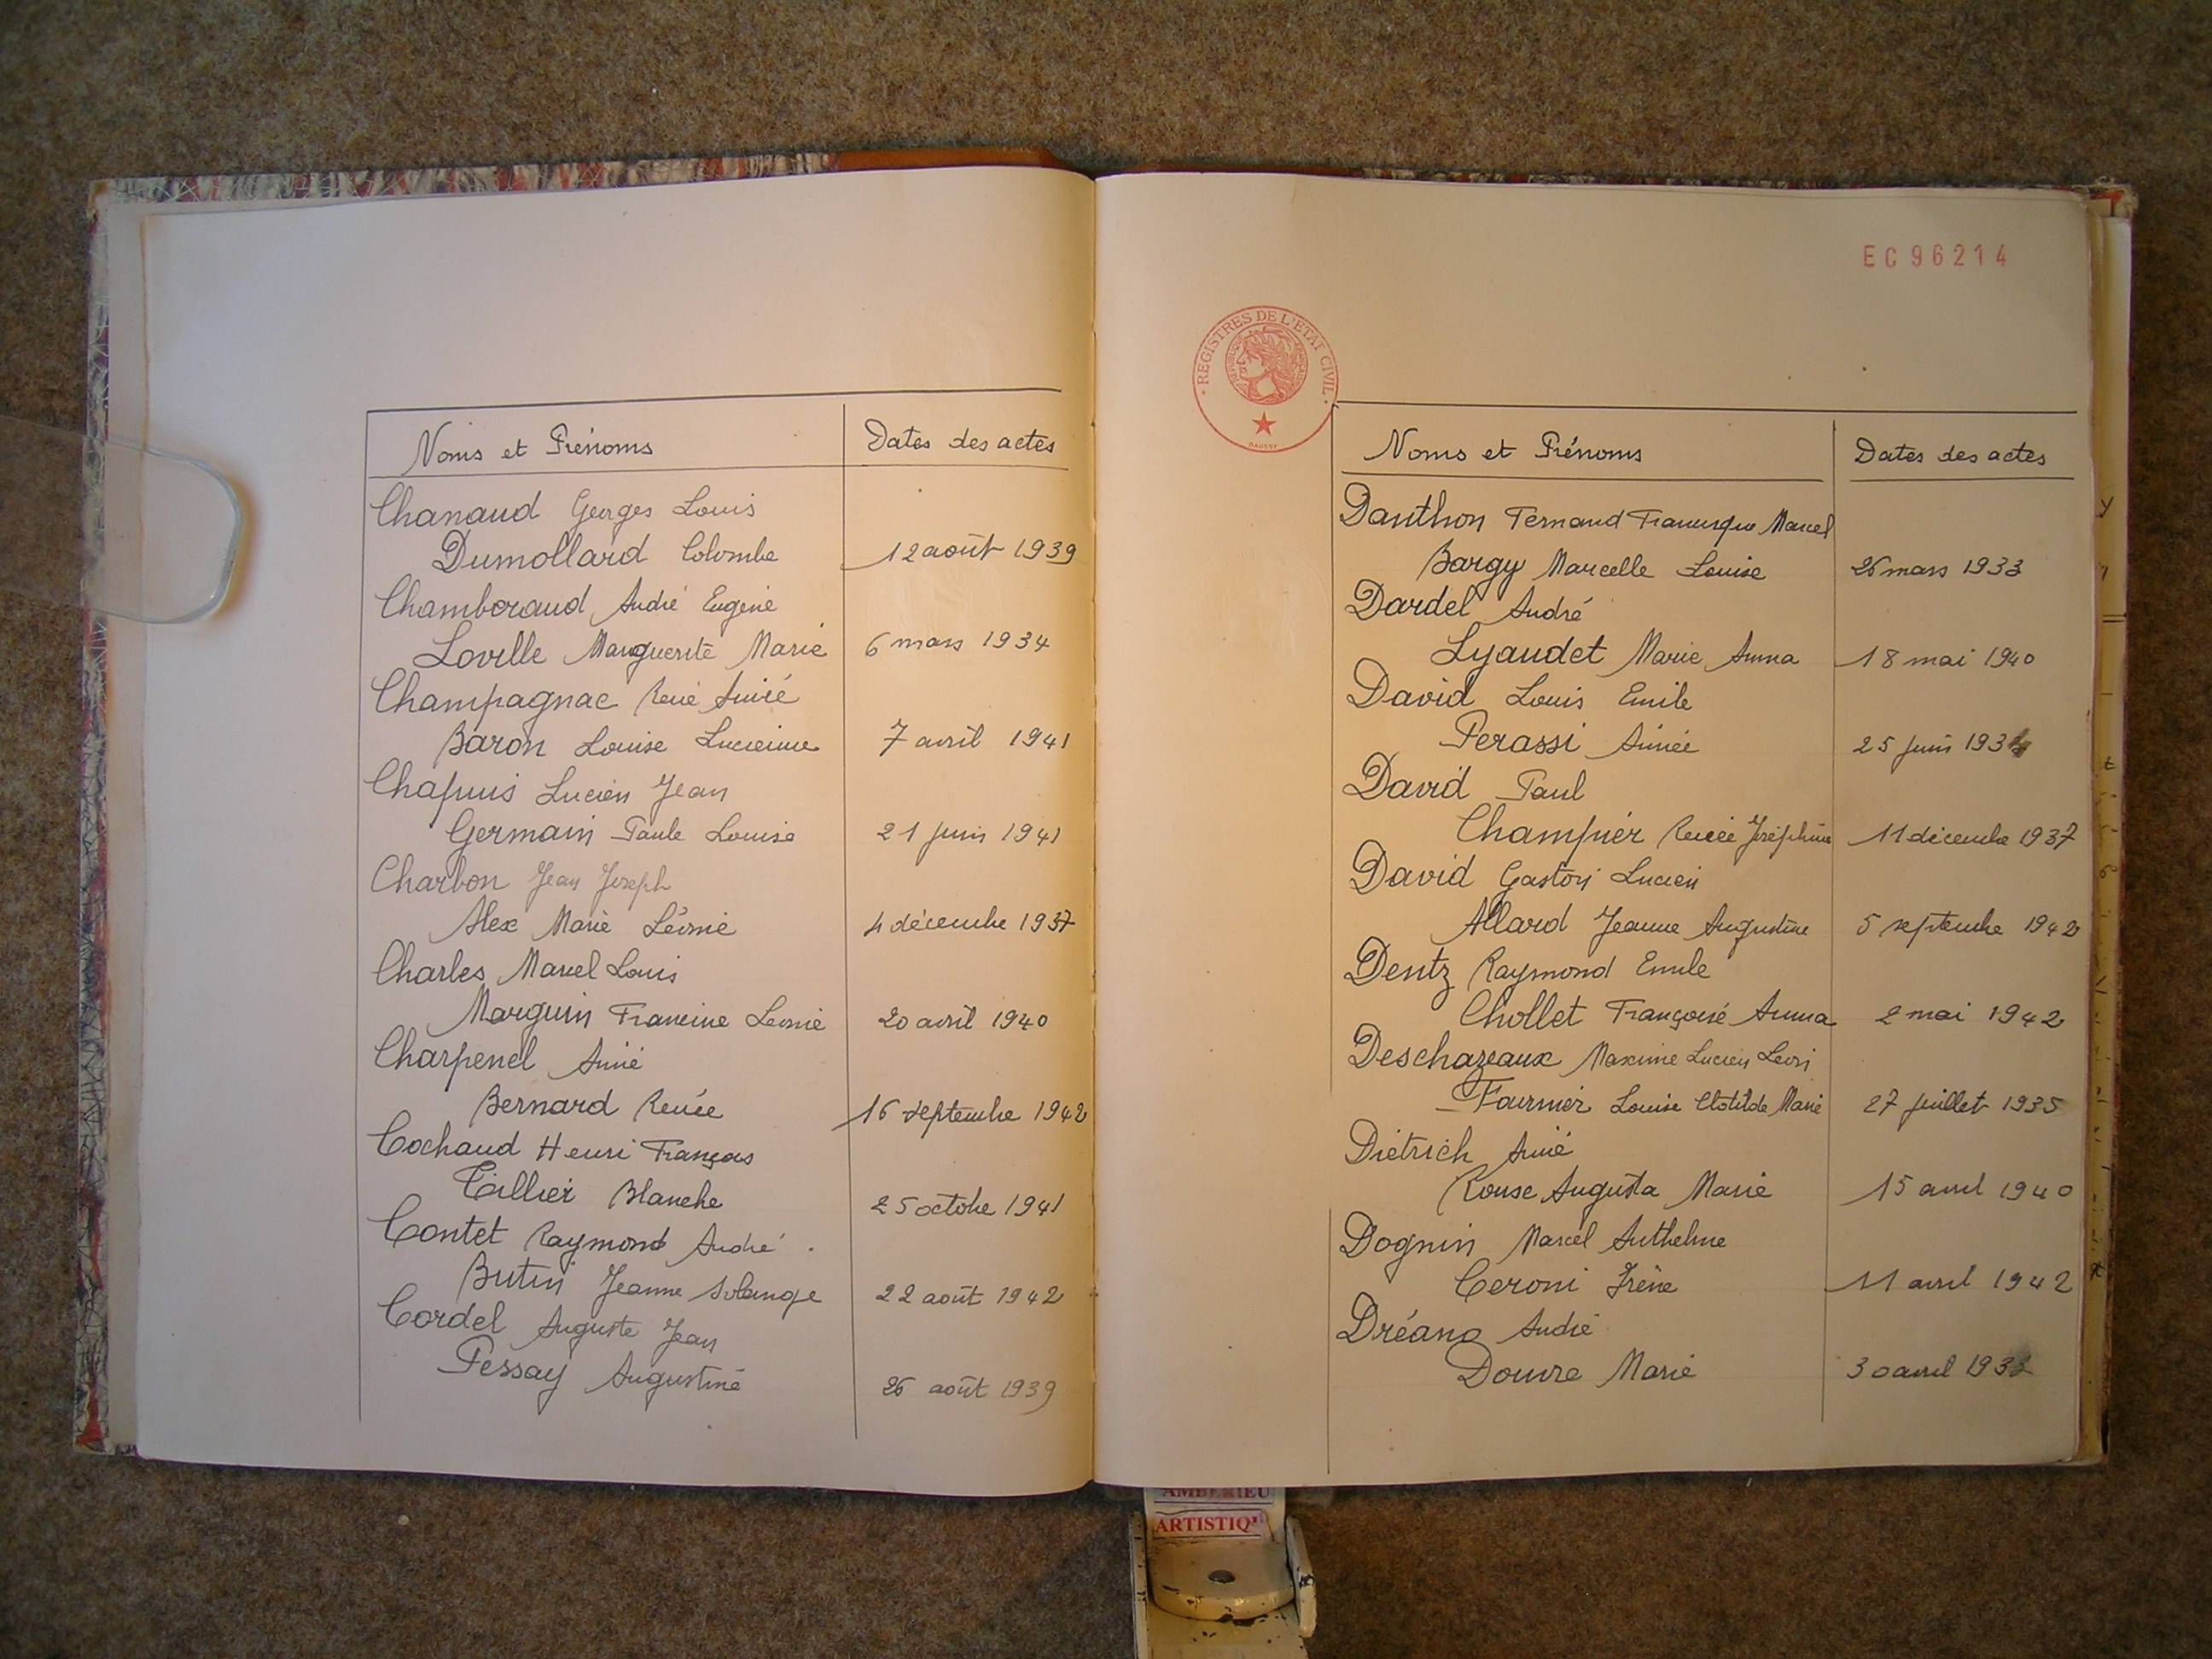 Noms et Prénoms Dates des actes
Chanaud Georges Louis
Dumollard Colombe 12 août 1939
Chamberaud André Eugène
Loville Marguerite Marie 6 mars 1934
Champagnac René Aimé
Baron Louise Lucienne 7 avril 1941
Chapuis Lucien Jean
Germain Paule Louise 21 juin 1941
Charbon Jean Joseph
Alex Marie Léonie 4 décembre 1937
Charles Marcel Louis
Marguin Francine Leonie 20 avril 1940
Charpenel Aimé
Bernard Renée 16 septembre 1942
Cochaud Henri François
Tillier Blanche 25 octobre 1941
Contet Raymond André
Butin Jeanne Solange 22 août 1942
Cordel Auguste Jean
Pessay Augustine 26 août 1939
EC96214
REGISTRES DE L'ETAT CIVIL
DAUSSY
Noms et Prénoms Dates des actes
Danthon Fernand Francisque Marcel
Bargy Marcelle Louise 26 mars 1933
Dardel André
Lyaudet Marie Anna 18 mai 1940
David Louis Emile
Perassi Aimée 25 juin
David Paul
Champier Renée Joséphine 11 décembre 1937
David Gaston Lucien
Allard Jeanne Augustine 5 septembre 1942
Dentz Raymond Emile
Chollet Françoise Anna 2 mai 1942
Deschazeaux Maxime Lucien Léon
Fournier Louise Clotilde Marie 27 juillet 1935
Dietrich Aimé
Rouse Augusta Marie 15 avril 1940
Dognin Marcel Anthelme
Ceroni Irène 11 avril 1942
Dréano André
Douvre Marie 30 avril
AMBERIEU
ARTISTIQ